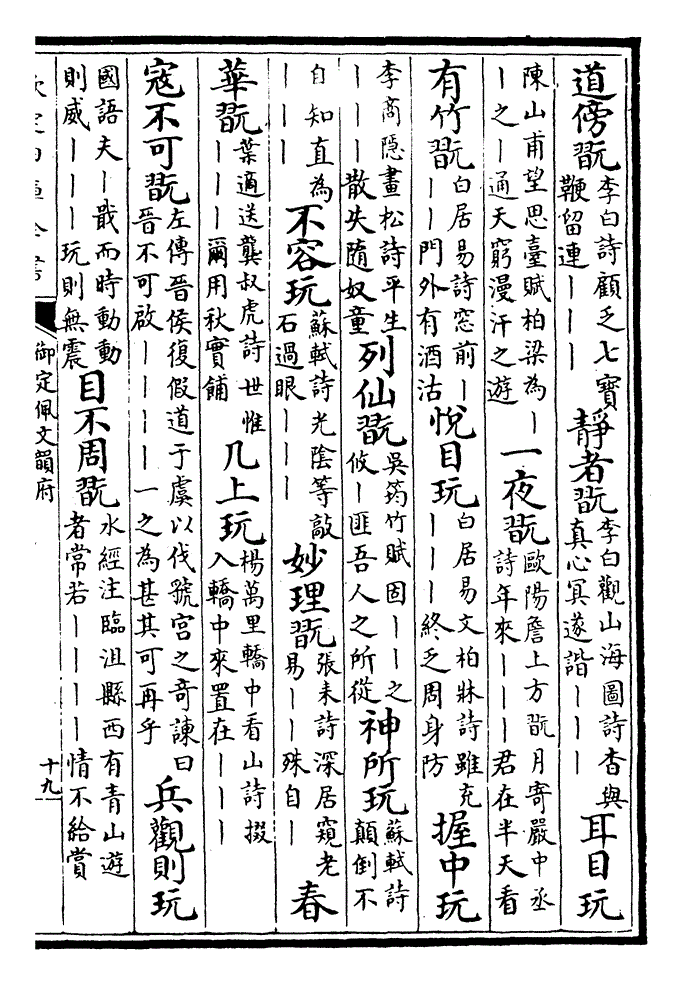 道傍翫李白詩顧乏七寶鞭留連｜｜｜靜者翫李白觀山海圖詩杳與真心冥遂諧｜｜｜耳目玩
陳山甫望思臺賦柏梁為｜｜之｜通天窮漫汗之遊一夜翫歐陽詹上方翫月寄嚴中丞詩年來｜｜｜君在半天看
有竹翫白居易詩窓前｜｜｜門外有酒沽悅目玩白居易文柏牀詩雖充｜｜｜終乏周身防握中玩
李商隱畫松詩平生｜｜｜散失隨奴童列仙翫吳筠竹賦固｜｜之攸｜匪吾人之所從神所玩蘇軾詩顛倒不
自知直為｜｜｜不容玩蘇軾詩光陰等敲石過眼｜｜｜妙理翫張耒詩深居窺老易｜｜殊自｜春
華翫葉適送龔叔虎詩世惟｜｜｜爾用秋實餔几上玩楊萬里轎中看山詩掇入轎中來置在｜｜｜
寇不可翫左傳晉侯復假道于虞以伐虢宫之奇諫曰晉不可啟｜｜｜｜一之為甚其可再乎兵觀則玩
國語夫｜戢而時動動則威｜｜｜玩則無震目不周翫水經注臨沮縣西有青山遊者常若｜｜｜｜情不給賞
欽定四庫全書
御定佩文韻府
十九